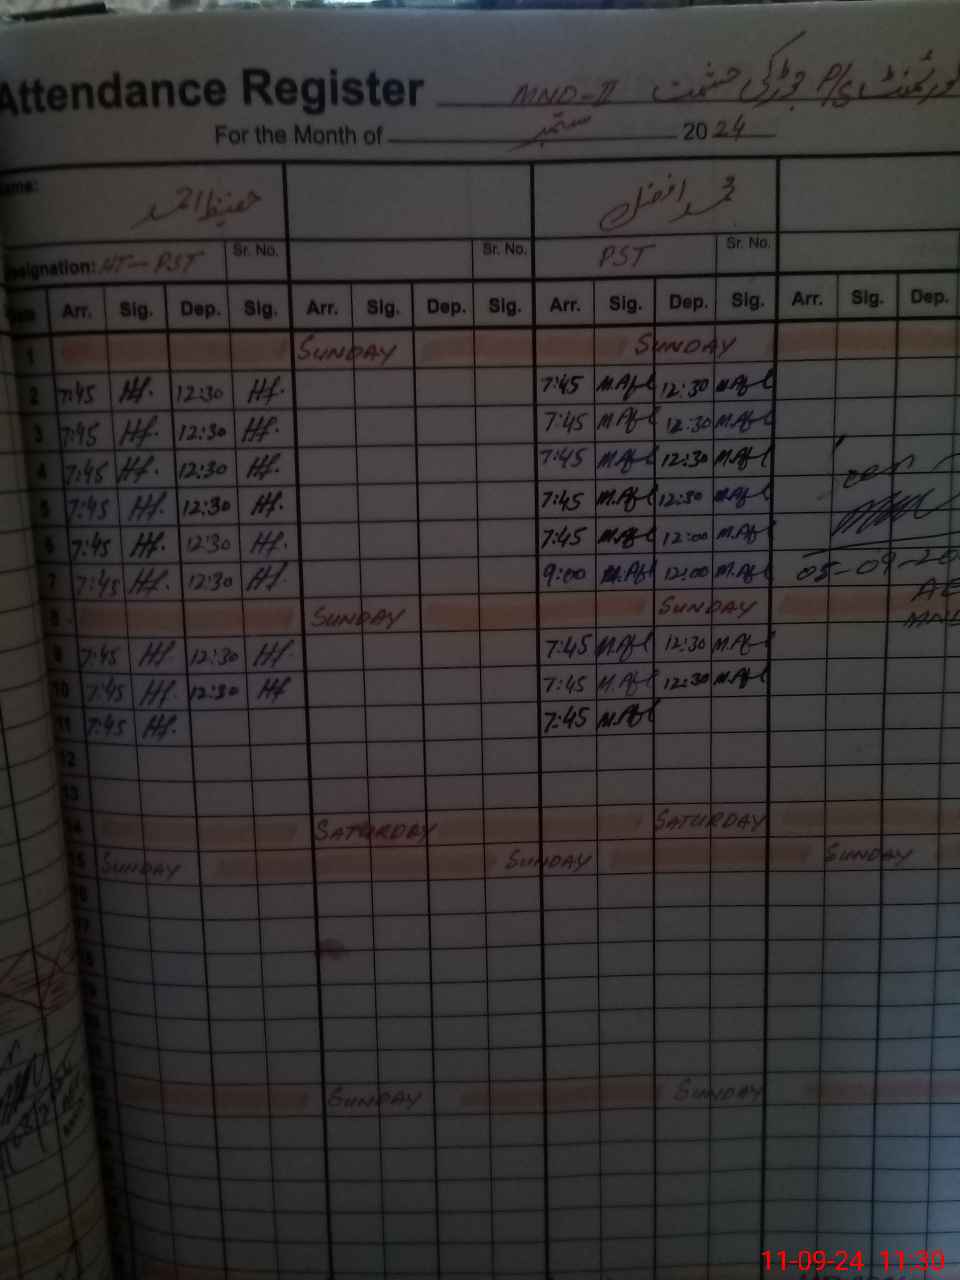 Attendance Register MND-II گورنمنٹ P/S
For the Month of ستمبر 2024
Name: حفیظ احمد محمد افضل
Designation: HT-PST Sr. No. Sr. No. PST Sr. No.
Date Arr. Sig. Dep. Sig. Arr. Sig. Dep. Sig. Arr. Sig. Dep. Sig. Arr. Sig. Dep.
1 SUNDAY SUNDAY
2 7:45 Hf. 12:30 Hf. 7:45 M.Afl 12:30 M.Afl
3 7:45 Hf. 12:30 Hf. 7:45 M.Afl 12:30 M.Afl
4 7:45 Hf. 12:30 Hf. 7:45 M.Afl 12:30 M.Afl
5 7:45 Hf. 12:30 Hf. 7:45 M.Afl 12:30 M.Afl
6 7:45 Hf. 12:30 Hf. 7:45 M.Afl 12:00 M.Afl
7 7:45 Hf. 12:30 Hf. 9:00 M.Afl 12:00 M.Afl 05-09-20
8 SUNDAY SUNDAY
9 7:45 Hf 12:30 Hf. 7:45 M.Afl 12:30 M.Afl
10 7:45 Hf. 12:30 Hf 7:45 M.Afl 12:30 M.Afl
11 7:45 Hf. 7:45 M.Afl
12
13
14 SATURDAY SATURDAY
15 SUNDAY SUNDAY SUNDAY
16
17
18
19
SUNDAY SUNDAY
11-09-24 11:30